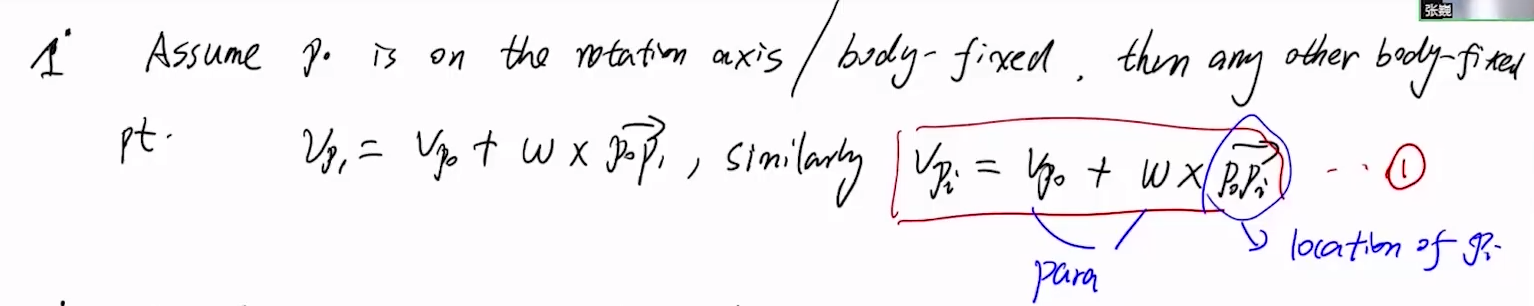 张巍
1° Assume p₀ is on the rotation axis / body-fixed, then any other body-fixed
pt. v_{p₁} = v_{p₀} + ω × \overrightarrow{p₀p₁}, similarly v_{pᵢ} = v_{p₀} + ω × \overrightarrow{p₀pᵢ} --- ①
para
location of pᵢ